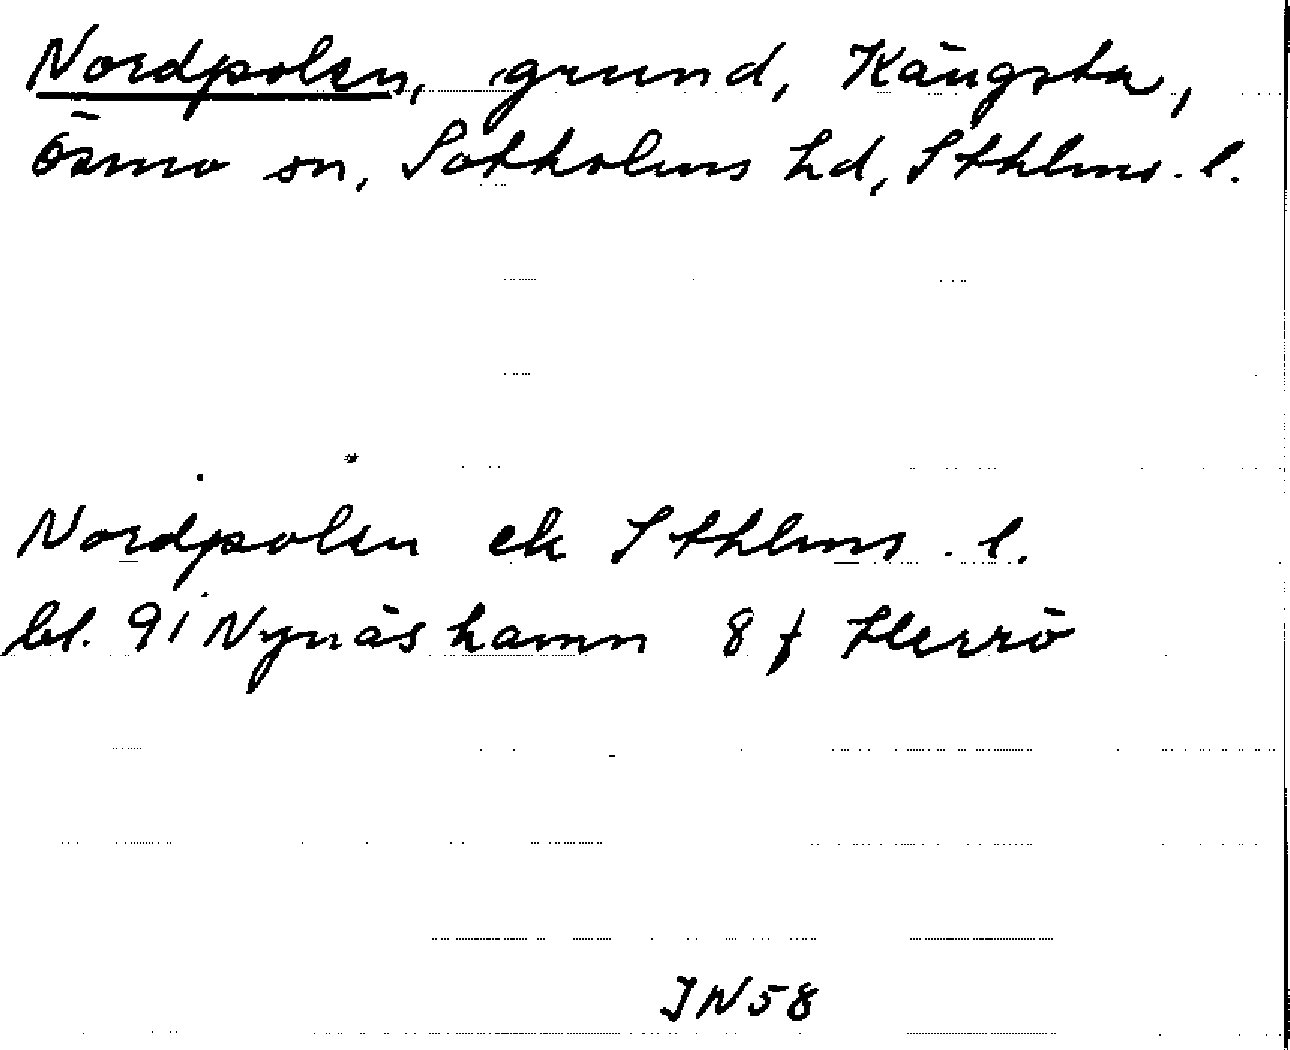 Nordpolen, grund, Kängsta,
Ösmo sn, Sotholms hd, Sthlms. l.
Nordpolen ek Sthlms. l.
bl. 91 Nynäshamn 8 f Herrö
JN58